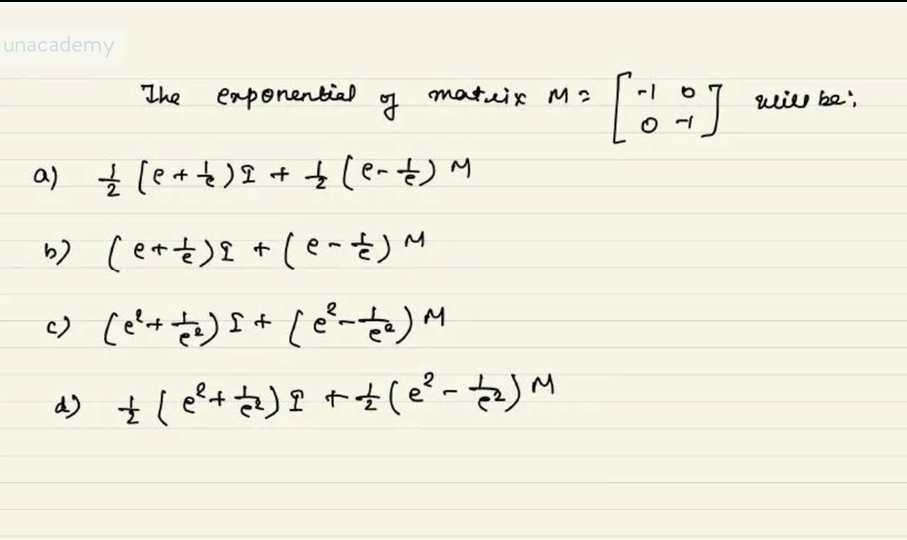 unacademy
The exponential of matrix M = [-1 0
0 -1] will be:
a) 1/2 (e + 1/e) I + 1/2 (e - 1/e) M
b) (e + 1/e) I + (e - 1/e) M
c) (e² + 1/e²) I + (e² - 1/e²) M
d) 1/2 (e² + 1/e²) I + 1/2 (e² - 1/e²) M